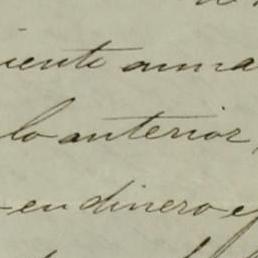 iente anua
lo anterior,
en dinero e